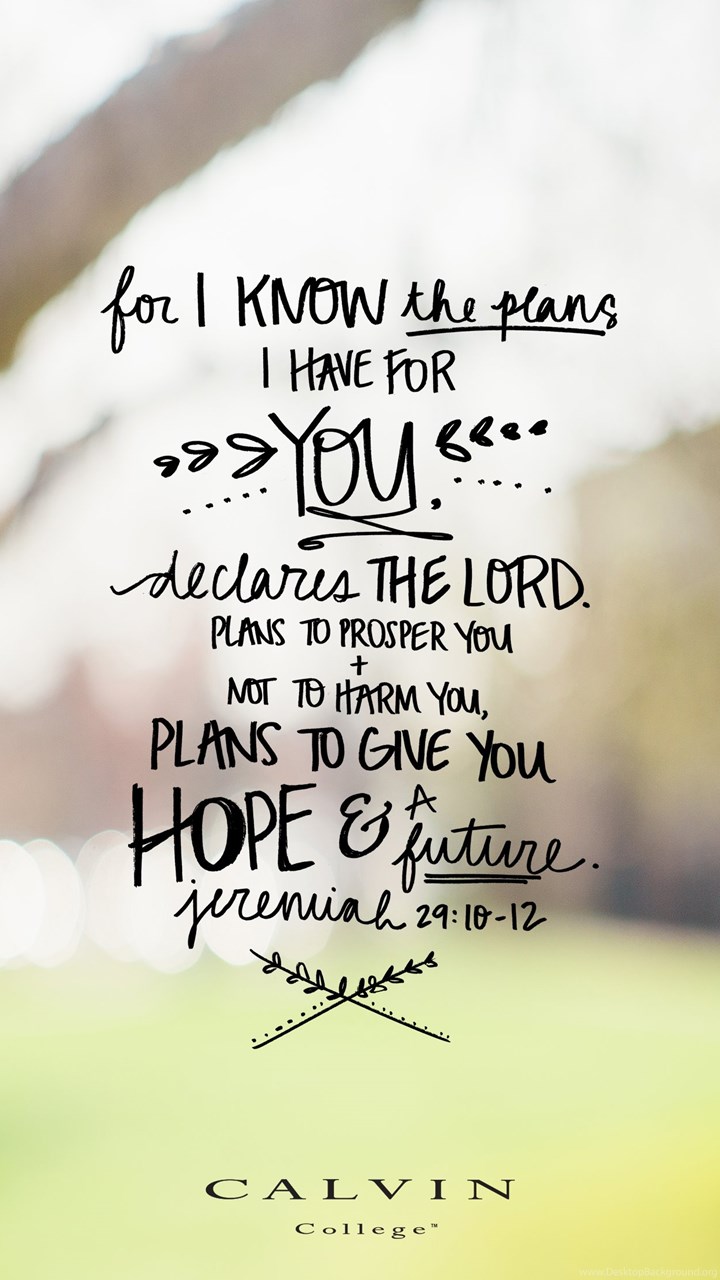 for I KNOW the plans
I HAVE FOR
YOU,
declares THE LORD.
PLANS TO PROSPER YOU
+
NOT TO HARM YOU,
PLANS TO GIVE YOU
HOPE & A
future.
jeremiah 29:10-12
CALVIN
College™